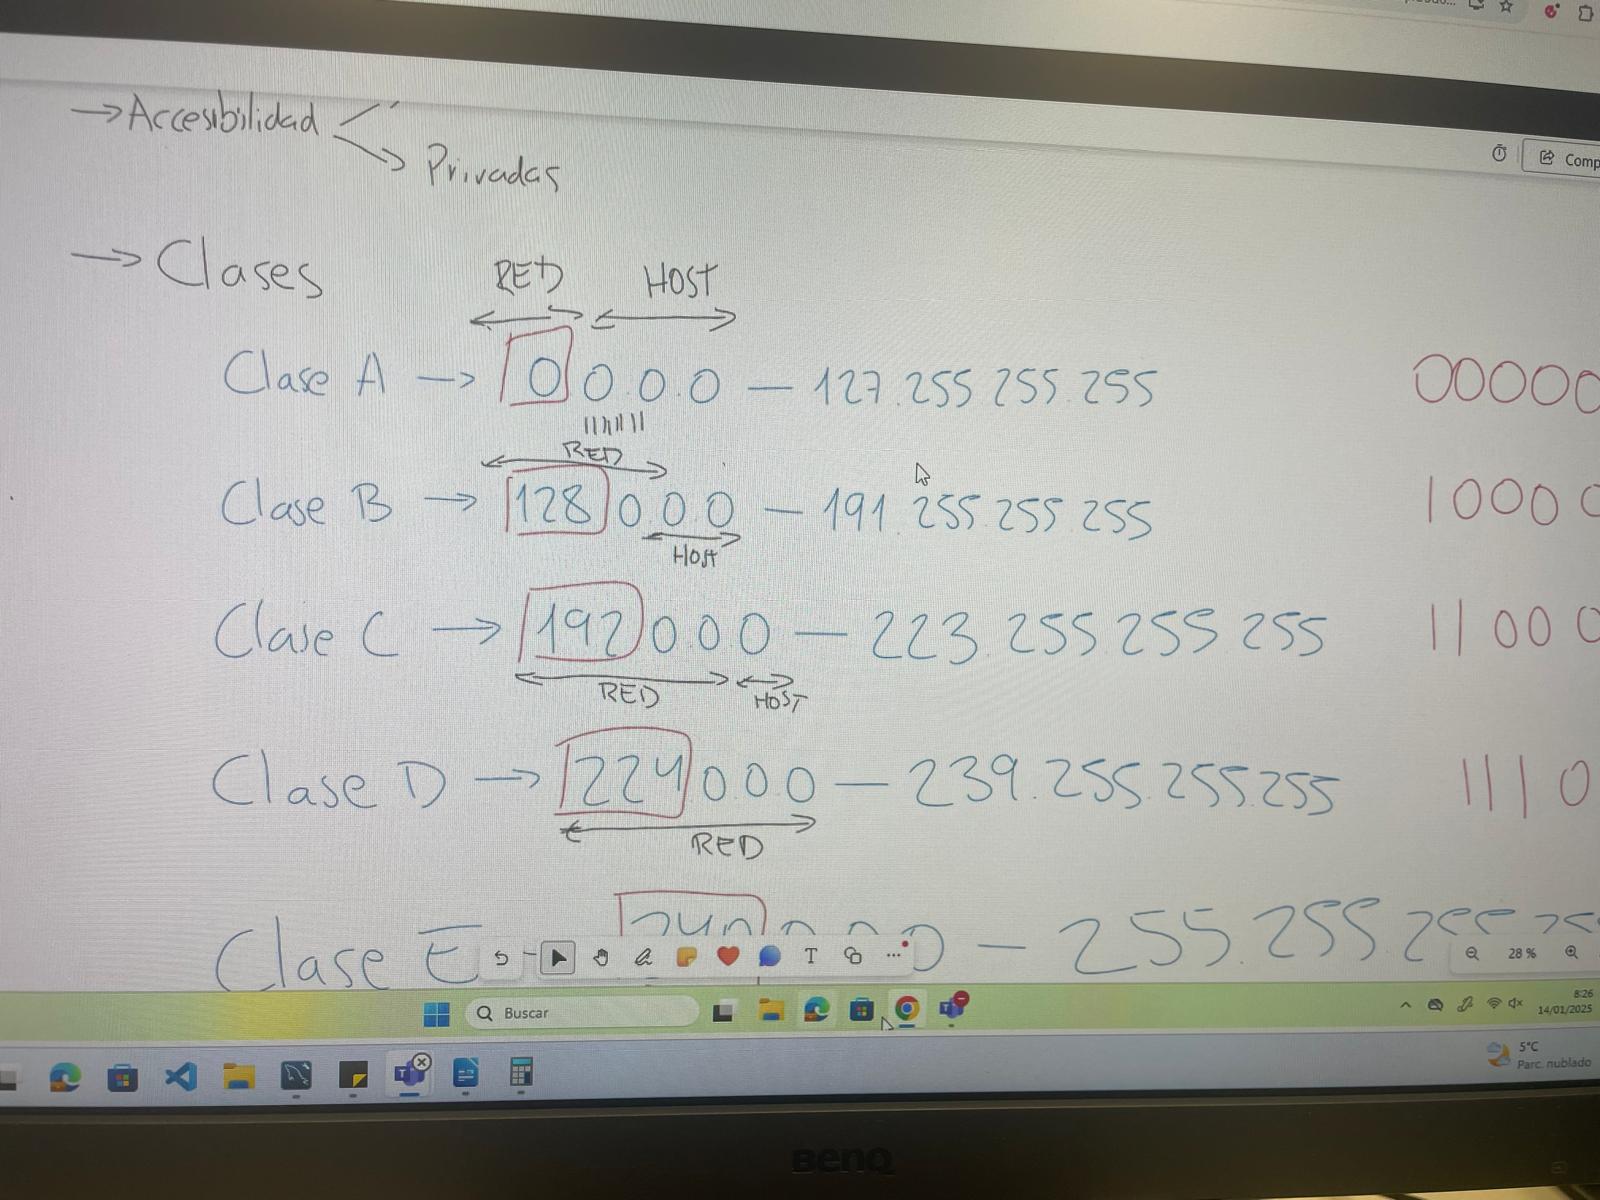 → Accesibilidad
→ Privadas
Comp
→ Clases
RED HOST
Clase A → 0 0.0.0 — 127.255.255.255 00000
RED
Clase B → 128 0.0.0 — 191.255.255.255 1000
HOST
Clase C → 192 0.0.0 — 223.255.255.255 1100
RED HOST
Clase D → 224 0.0.0 — 239.255.255.255 1110
RED
Clase E 255.255.
T
28 %
Buscar
8:26
14/01/2025
5°C
Parc. nublado
BenQ